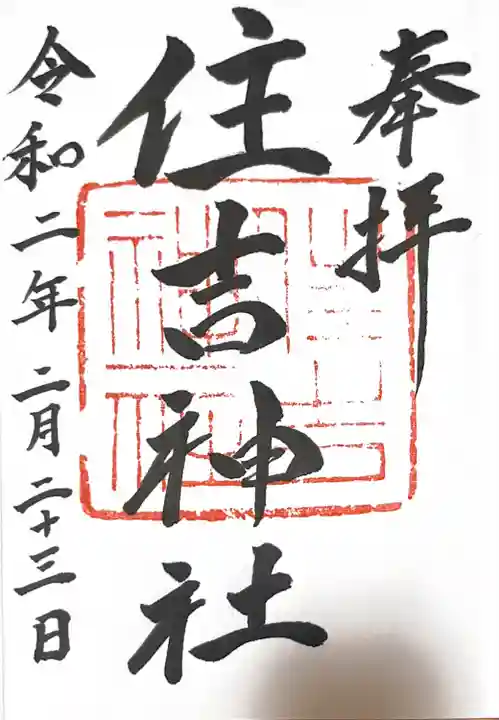 奉拝
住吉神社
令和二年二月二十三日